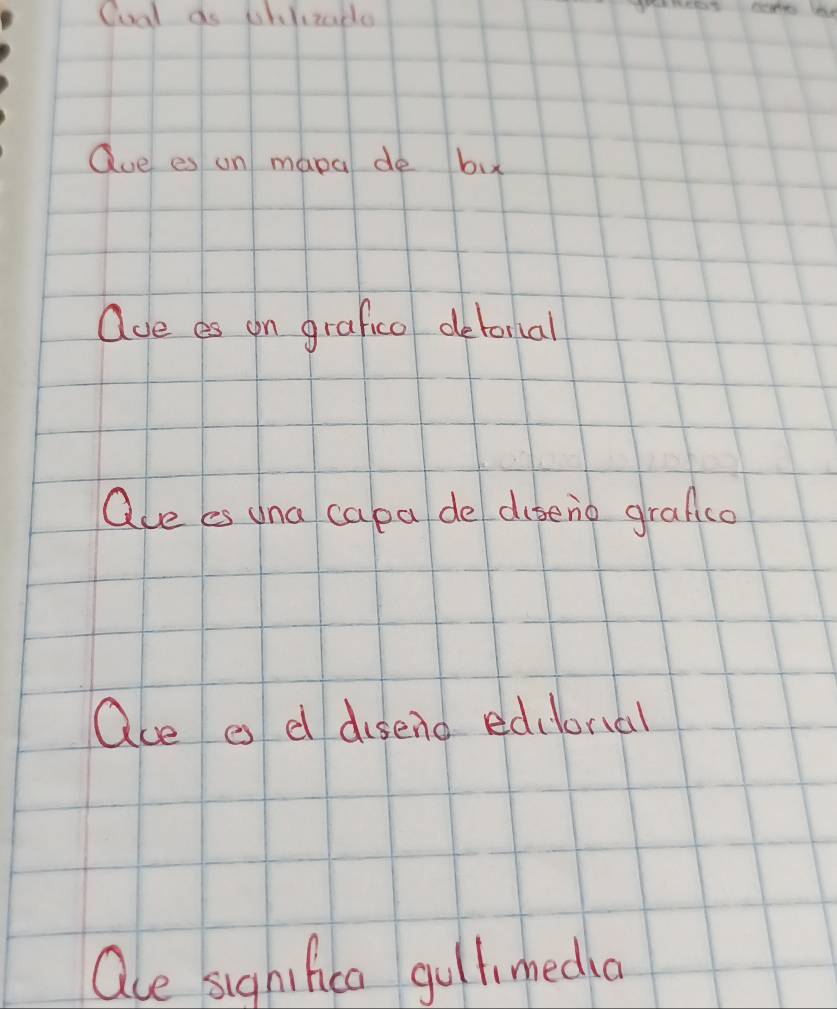 Cual as utilizado
Que es un mapa de bix
Que es un grafico detorial
Que es una capa de diseño grafico
Que es el diseño editorial
Que significa gultimedia